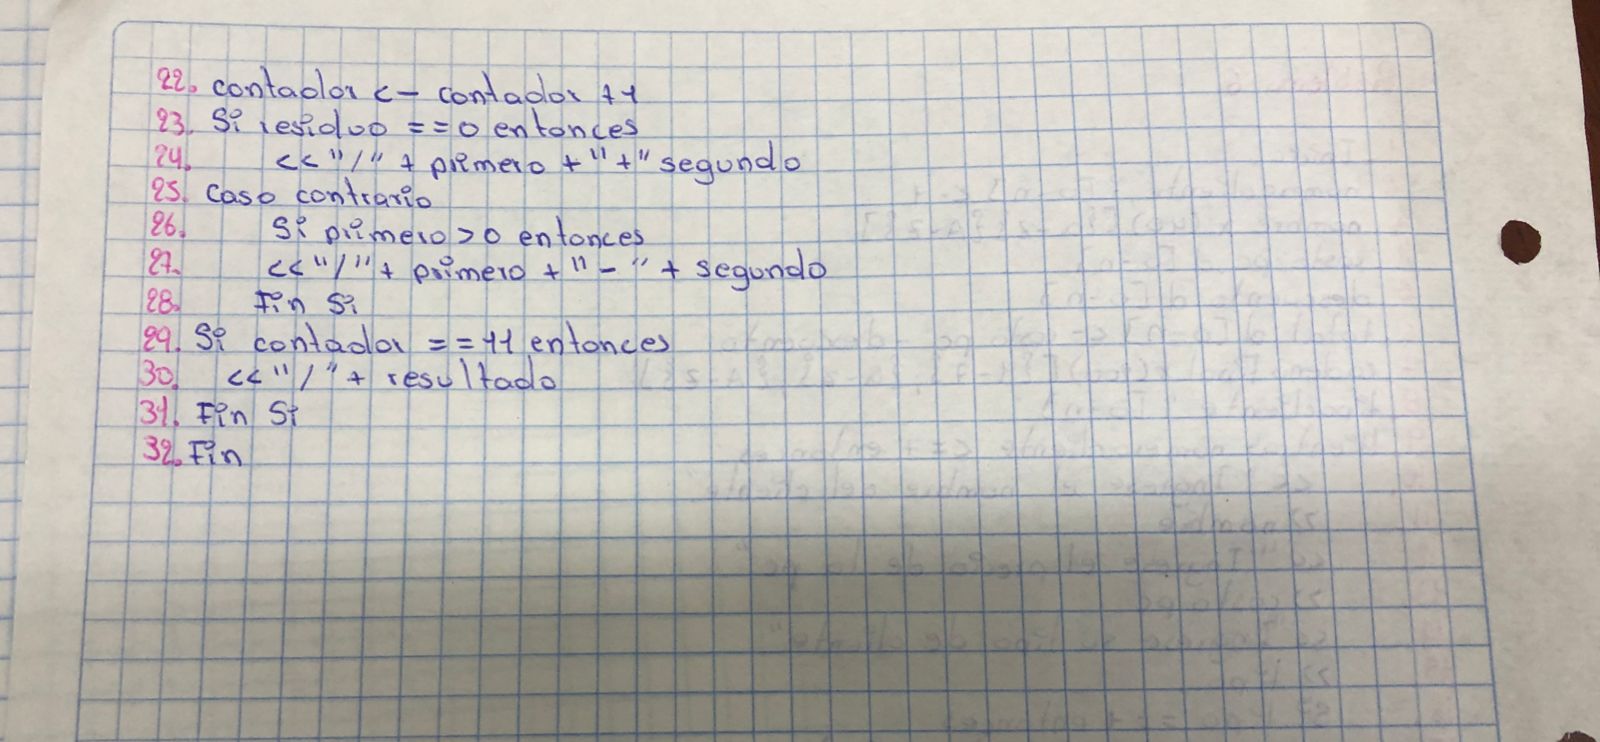 22. contador <- contador +1
23. Si residuo ==0 entonces
24. <<"/" + primero + "+" segundo
25. Caso contrario
26. Si primero >0 entonces
27. <<"/"+ primero + "-" + segundo
28. Fin Si
29. Si contador ==11 entonces
30. <<"/"+ resultado
31. Fin Si
32. Fin